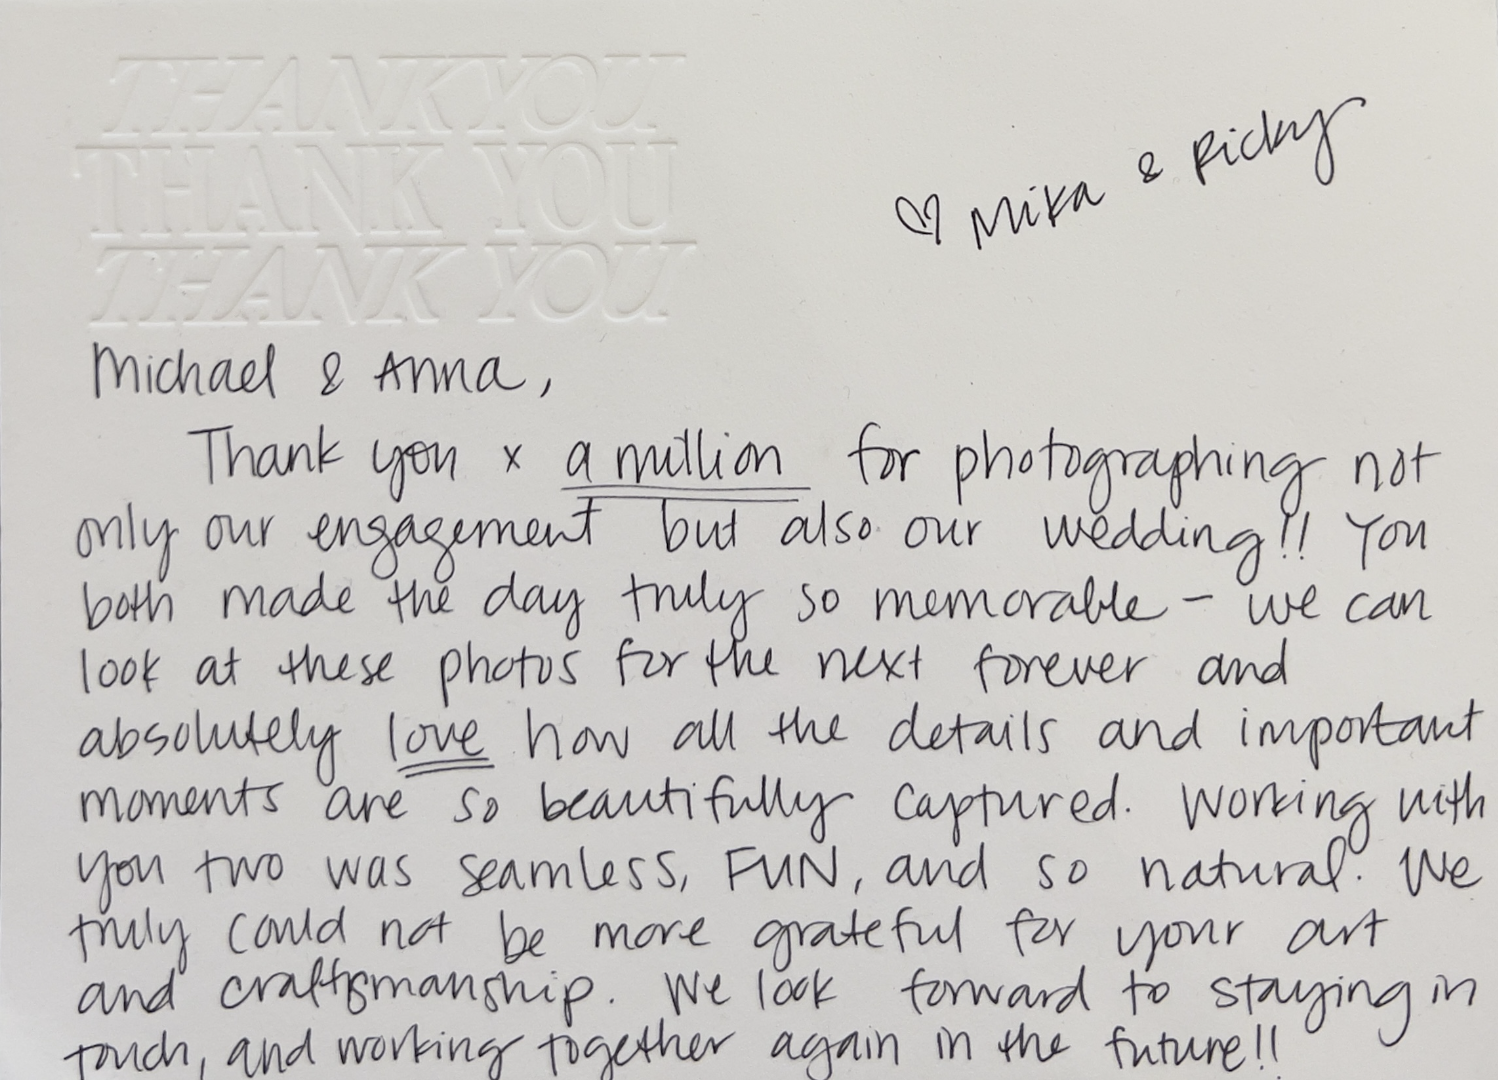 THANK YOU
THANK YOU
THANK YOU
♡ Mika & Ricky
Michael & Anna,
Thank you x a million for photographing not
only our engagement but also our wedding!! You
both made the day truly so memorable - we can
look at these photos for the next forever and
absolutely love how all the details and important
moments are so beautifully captured. Working with
you two was seamless, FUN, and so natural. We
truly could not be more grateful for your art
and craftsmanship. We look forward to staying in
touch, and working together again in the future!!